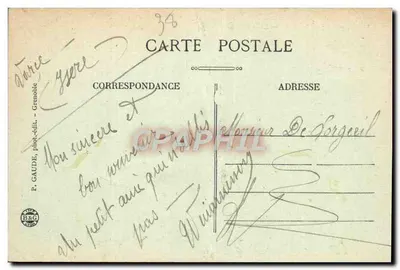 38
CARTE POSTALE
CORRESPONDANCE
ADRESSE
Varce
Isère
Mon sincère et
bon souvenir
Un petit ami qui n'oublie
pas
Monsieur De Lorgeril
P. GAUDE, phot-édit. - Grenoble
CPAPHIL.com